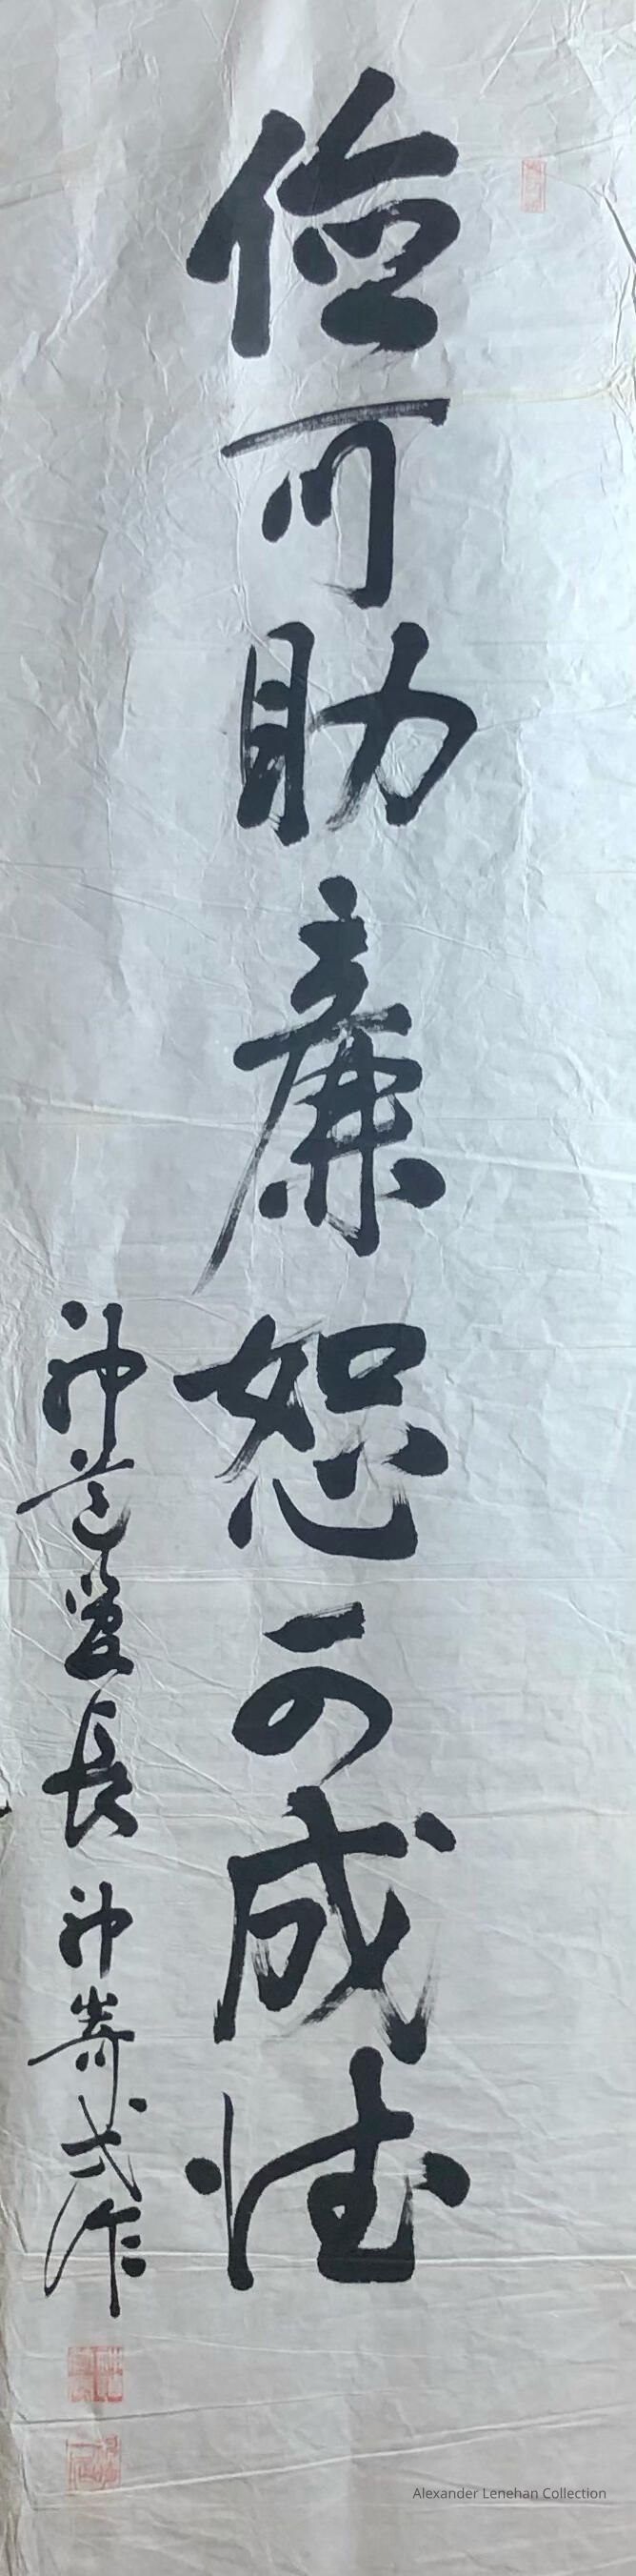 儉可助廉恕可成德
神道管長神嵜式作
Alexander Lenehan Collection